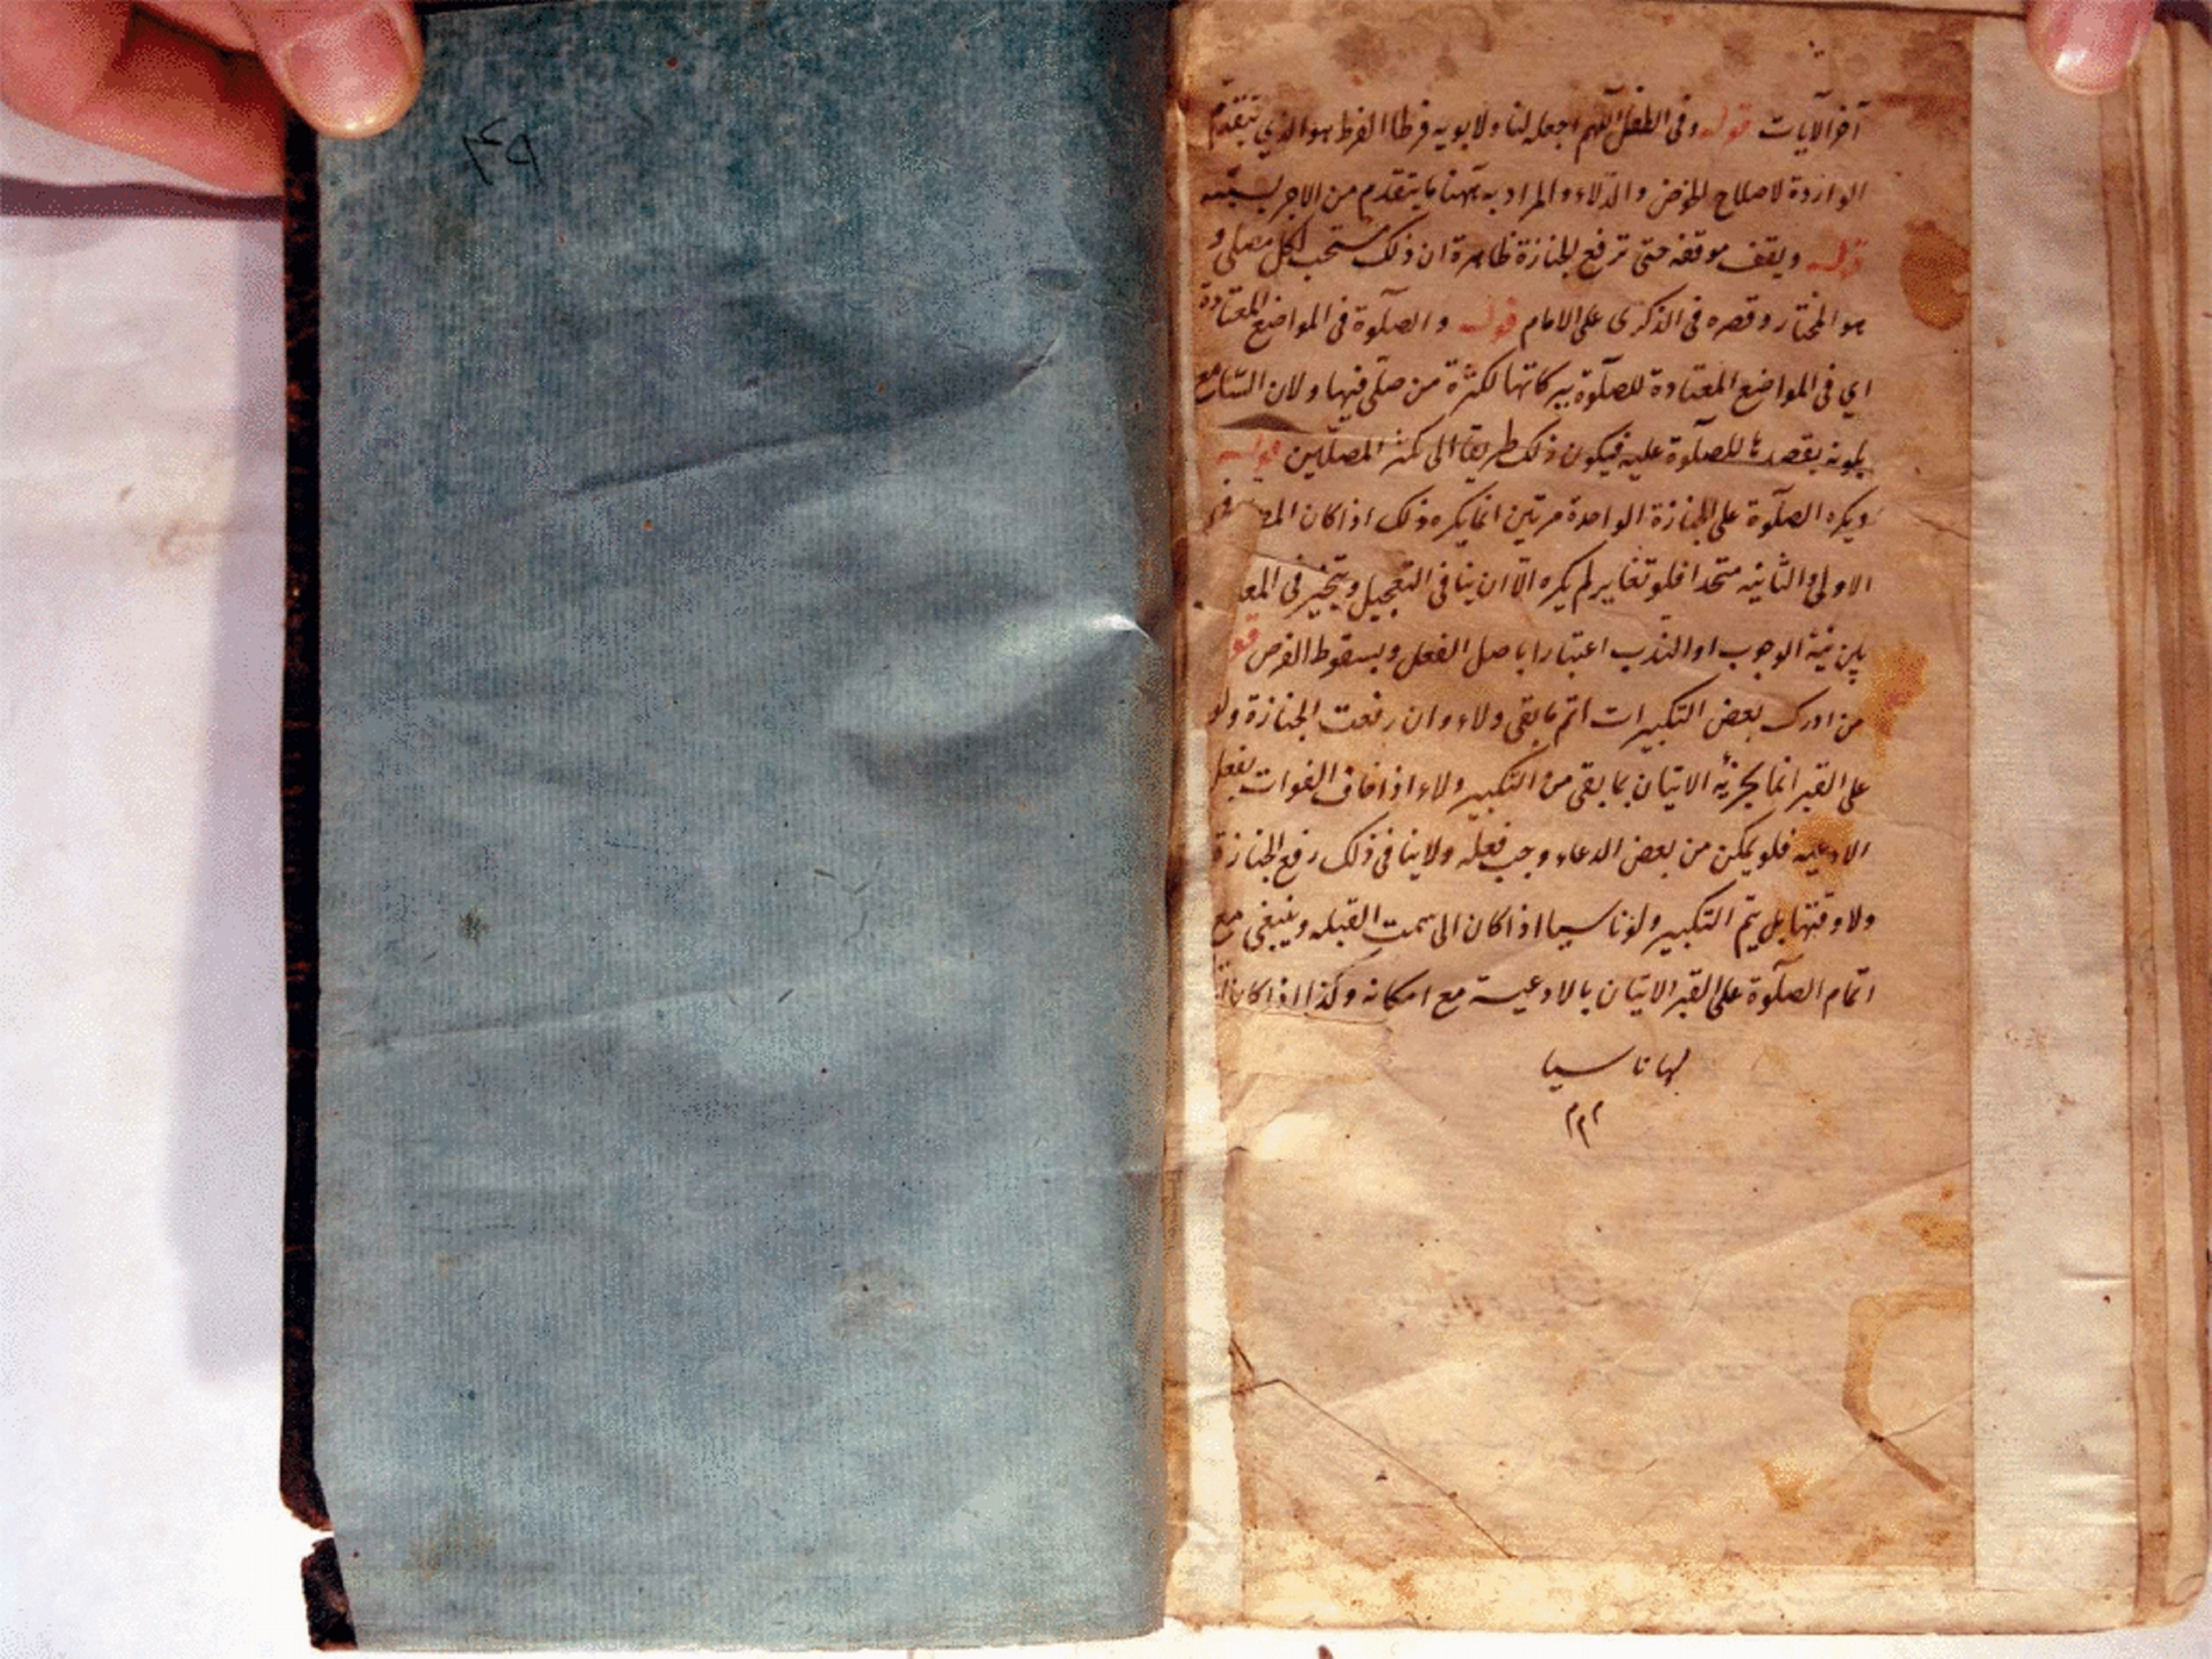 آخر الآيات قوله وفى الطفل اللهم اجعله لنا ولابويه فرطا الفرط هو الذي يتقدم
الواردة لاصلاح الحوض والدلاء والمراد به ههنا ما يتقدم من الاجر بسببه
قوله ويقف موقفه حتى ترفع الجنازة ظاهره ان ذلك مستحب لكل مصلى و
هو المختار وقصره فى الذكرى على الامام قوله والصلوة فى المواضع المعتادة
اي فى المواضع المعتادة للصلوة بركاتها لكثرة من صلى فيها ولان السامع
بموته يقصدها للصلوة عليه فيكون ذلك طريقا الى كثرة المصلين قوله
ويكره الصلوة على الجنازة الواحدة مرتين انما يكره ذلك اذا كان فى
الاولى والثانيه متحدا فلو تغاير لم يكره الا ان ينافى التعجيل ويتخير فى
بين نية الوجوب او الندب اعتبارا باصل الفعل وبسقوط الفرض
من ادرك بعض التكبيرات اتم ما بقى ولاء وان رفعت الجنازة ولو
على القبر انما يجزيه الاتيان بما بقى من التكبير ولاء اذا خاف الفوات بفعل
الادعيه فلو يمكن من بعض الدعاء وجب فعله ولا ينافى ذلك رفع الجنازة
ولا وقتها بل يتم التكبير ولو ناسيا اذا كان الى سمت القبله وينبغى مع
اتمام الصلوة على القبر الاتيان بالادعية مع امكانه وكذا اذا كان
لها ناسيا
م م م